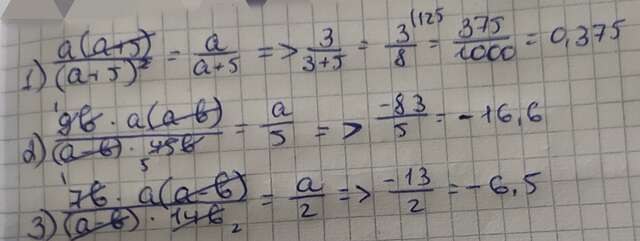 1) a(a+5)/(a+5)² = a/a+5 => 3/3+5 = 3/8 (125 = 375/1000 = 0,375
2) 9b · a(a-b)/(a-b) · 45b = a/5 => -83/5 = -16,6
3) 7b · a(a-b)/(a-b) · 14b = a/2 => -13/2 = -6,5